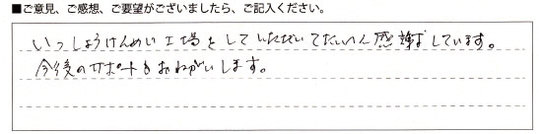 ■ご意見、ご感想、ご要望がございましたら、ご記入ください。
いっしょうけんめい工場をしていただいてたいへん感謝しています。
今後のサポートもおねがいします。